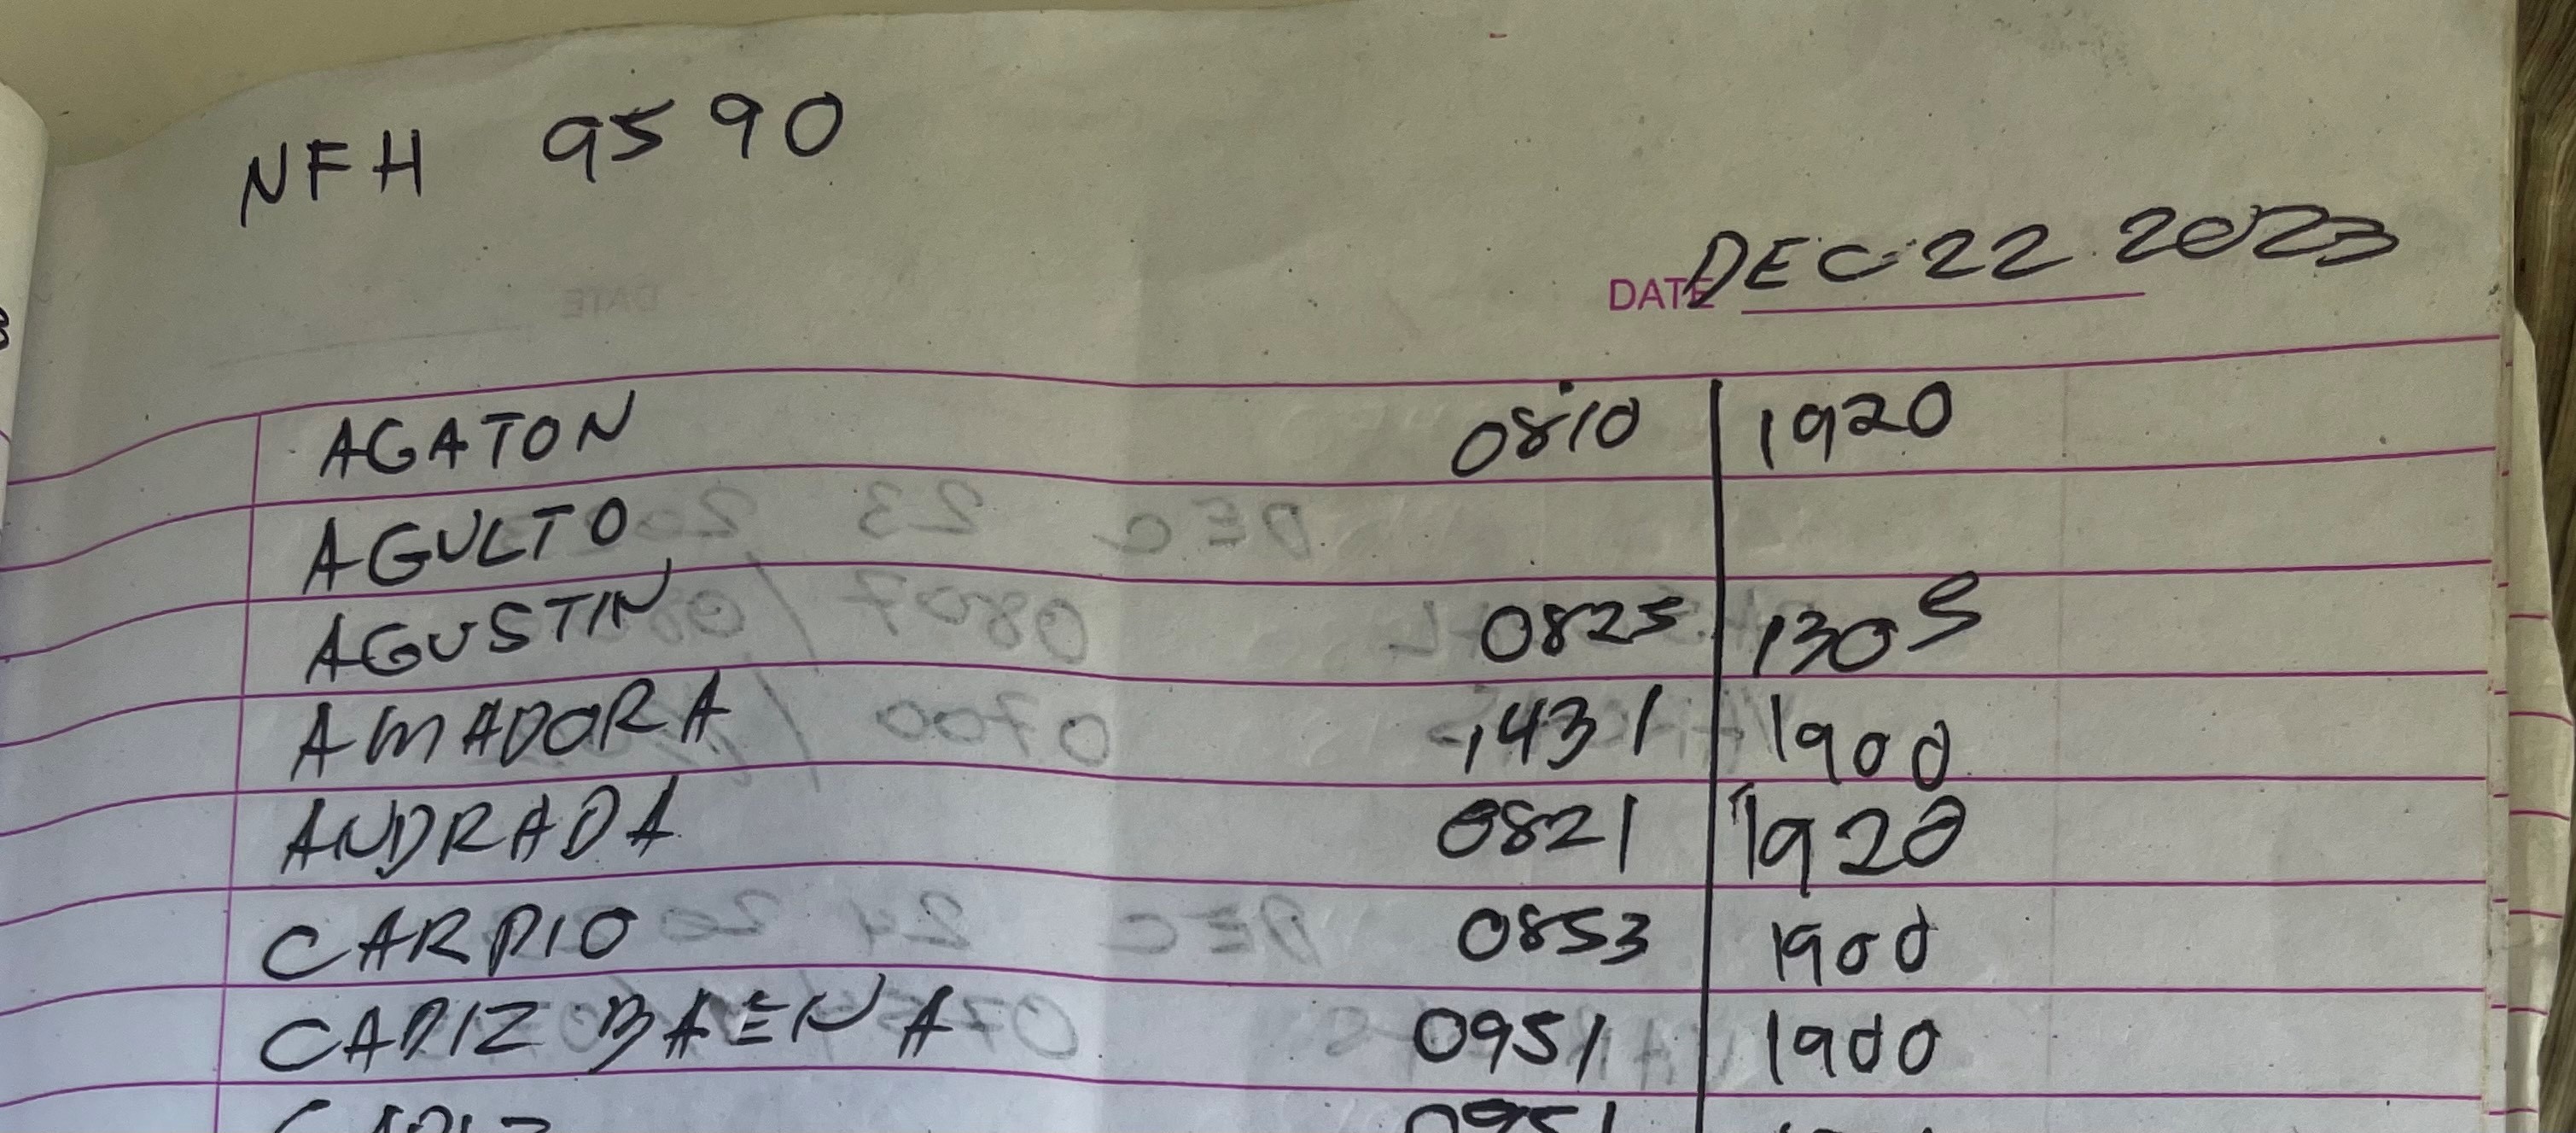 NFH 9590
DATE DEC 22 2023
AGATON 0810 1920
AGULTO
AGUSTIN 0825 1305
AMADORA 1431 1900
ANDRADA 0821 1920
CARPIO 0853 1900
CADIZ BAENA 0951 1900